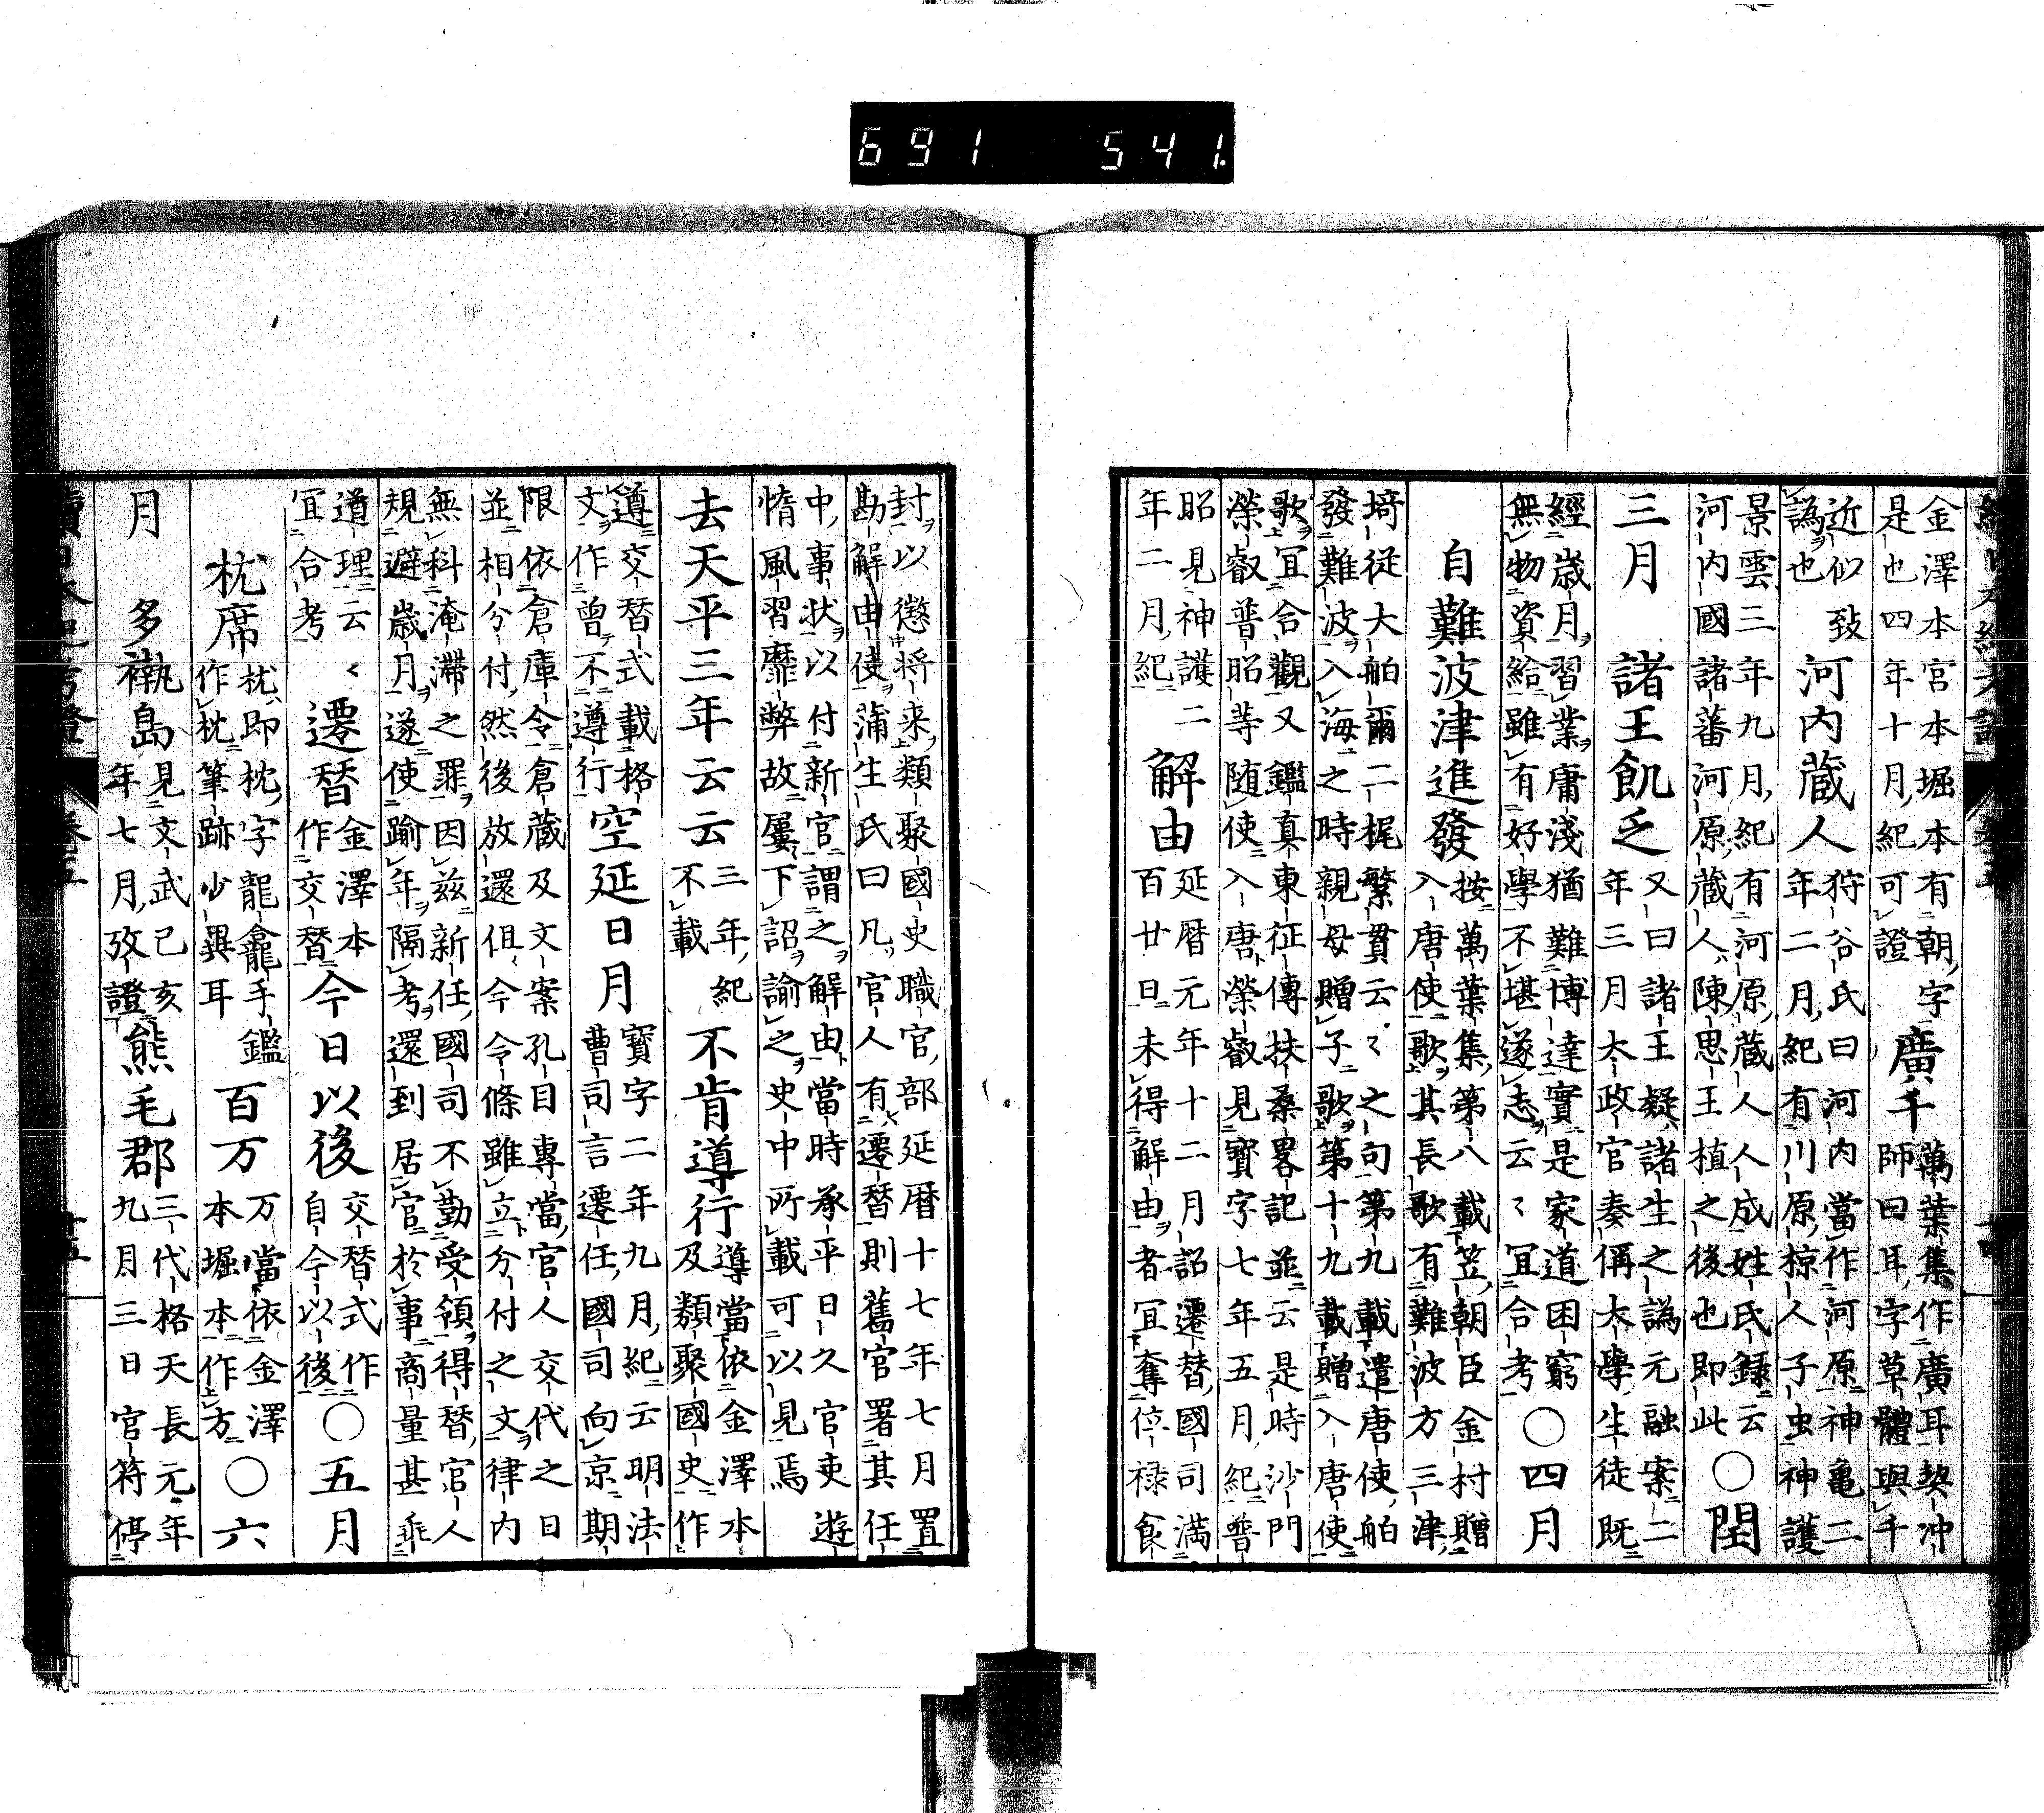 691 541.
金澤本宮本堀本有朝字
是也四年十月紀可證
廣千
萬葉集作廣耳契冲
師曰耳字草體與千
近似致
譌也
河内蔵人
狩谷氏曰河内當作河原神亀二
年二月紀有川原椋人子虫神護
景雲三年九月紀有河原蔵人人成姓氏録云
河内國諸蕃河原蔵人陳思王植之後也即此
〇閏
三月
諸王飢乏
又曰諸王疑諸生之譌元融案二
年三月太政官奏偁大學生徒既
經歳月習業庸淺猶難博達實是家道困窮
無物資給雖有好學不堪遂志云〻冝合考
〇四月
自難波津進發
按萬葉集第八載笠朝臣金村贈
入唐使歌其長歌有難波方三津
埼従大舶爾二梶繁貫云〻之句第九載遣唐使舶
發難波入海之時親母贈子歌第十九載贈入唐使
歌冝合觀又鑑真東征傳扶桑畧記並云是時沙門
榮叡普昭等随使入唐榮叡見寳字七年五月紀普
昭見神護二
年二月紀
解由
延暦元年十二月詔遷替國司満
百廿日未得解由者冝奪位禄食
封以懲将来類聚國史職官部延暦十七年七月置
勘解由使蒲生氏曰凡官人有遷替則舊官署其任
中事状以付新官謂之解由當時承平日久官吏遊
惰風習靡弊故屢下詔諭之史中所載可以見焉
去天平三年云云
三年紀
不載
不肯導行
導當依金澤本
及類聚國史作
遵交替式載格
文作曾不遵行
空延日月
寳字二年九月紀云明法
曹司言遷任國司向京期
限依倉庫令倉蔵及文案孔目專當官人交代之日
並相分付然後放還但今令條雖立分付之文律内
無科淹滞之罪因兹新任國司不勤受領得替官人
規避歳月遂使踰年隔考還到居官於事商量甚乖
道理云〻
冝合考
遷替
金澤本
作交替
今日以後
交替式作
自今以後
〇五月
枕席
枕即枕字龍龕手鑑
作枕筆跡少異耳
百万
万當依金澤
本堀本作方
〇六
月
多褹島
見文武己亥
年七月攷證
熊毛郡
三代格天長元年
九月三日官符停